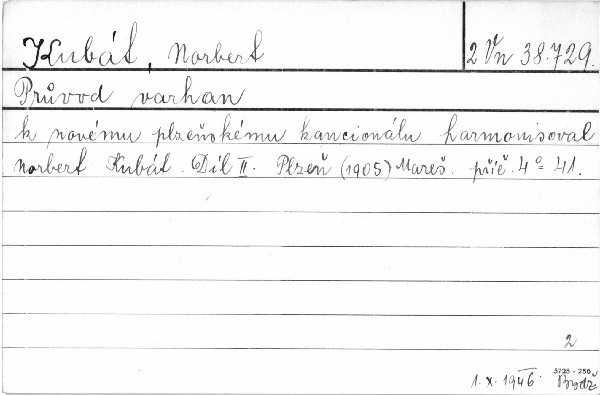 Kubát, Norbert
2 Vn 38.729.
Průvod varhan
k novému plzeňskému kancionálu harmonisoval
Norbert Kubát. Díl II. Plzeň (1905) Mareš. příč. 4° 41.
2
3725 - 256
1. X. 1946.